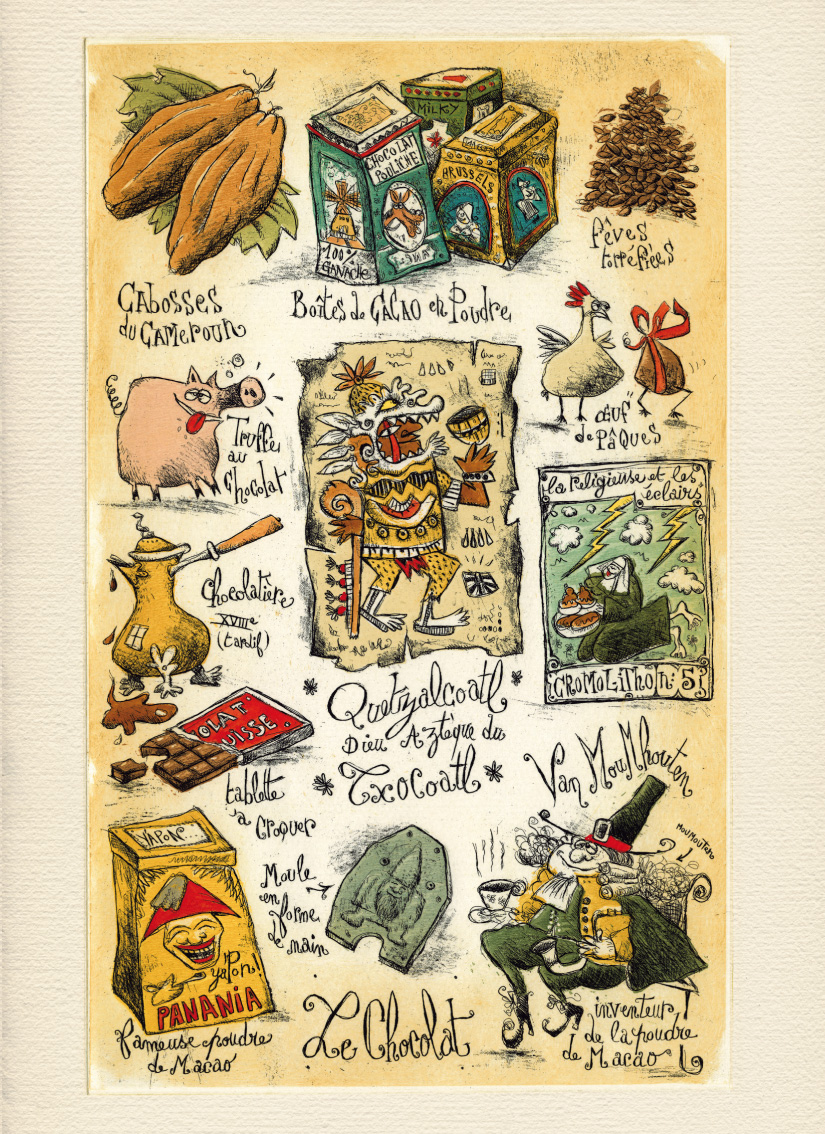 MILKY
CHOCOLAT
POULICHE
BRUSSELS
100%
GANACHE
fêves
torréfiées
CABOSSES
du CAMEROUN
Boîtes de CACAO en Poudre
œuf
de PÂQUES
Truffe
au
Chocolat
la religieuse et les
éclairs
CROMOLITHO n: 5
Chocolatière
XVIIIe
(tardif)
Quetzalcoatl
Dieu Aztèque du
Txocoatl
OLAT
UISSE
tablette
à croquer
Van MouMhouten
MOUMOUTENO
YAPON...
yapon!
PANANIA
fameuse poudre
de Macao
Moule
en
forme
de nain
Le Chocolat
inventeur
de la poudre
de Macao